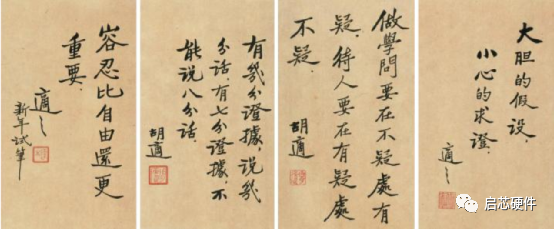 大胆的假設，
小心的求證，
適之
做學問要在不疑處有
疑，待人要在有疑處
不疑．
胡適
有幾分證據，說幾
分話，有七分證據，不
能說八分話
胡適
容忍比自由還更
重要．
適之
新年試筆
启芯硬件